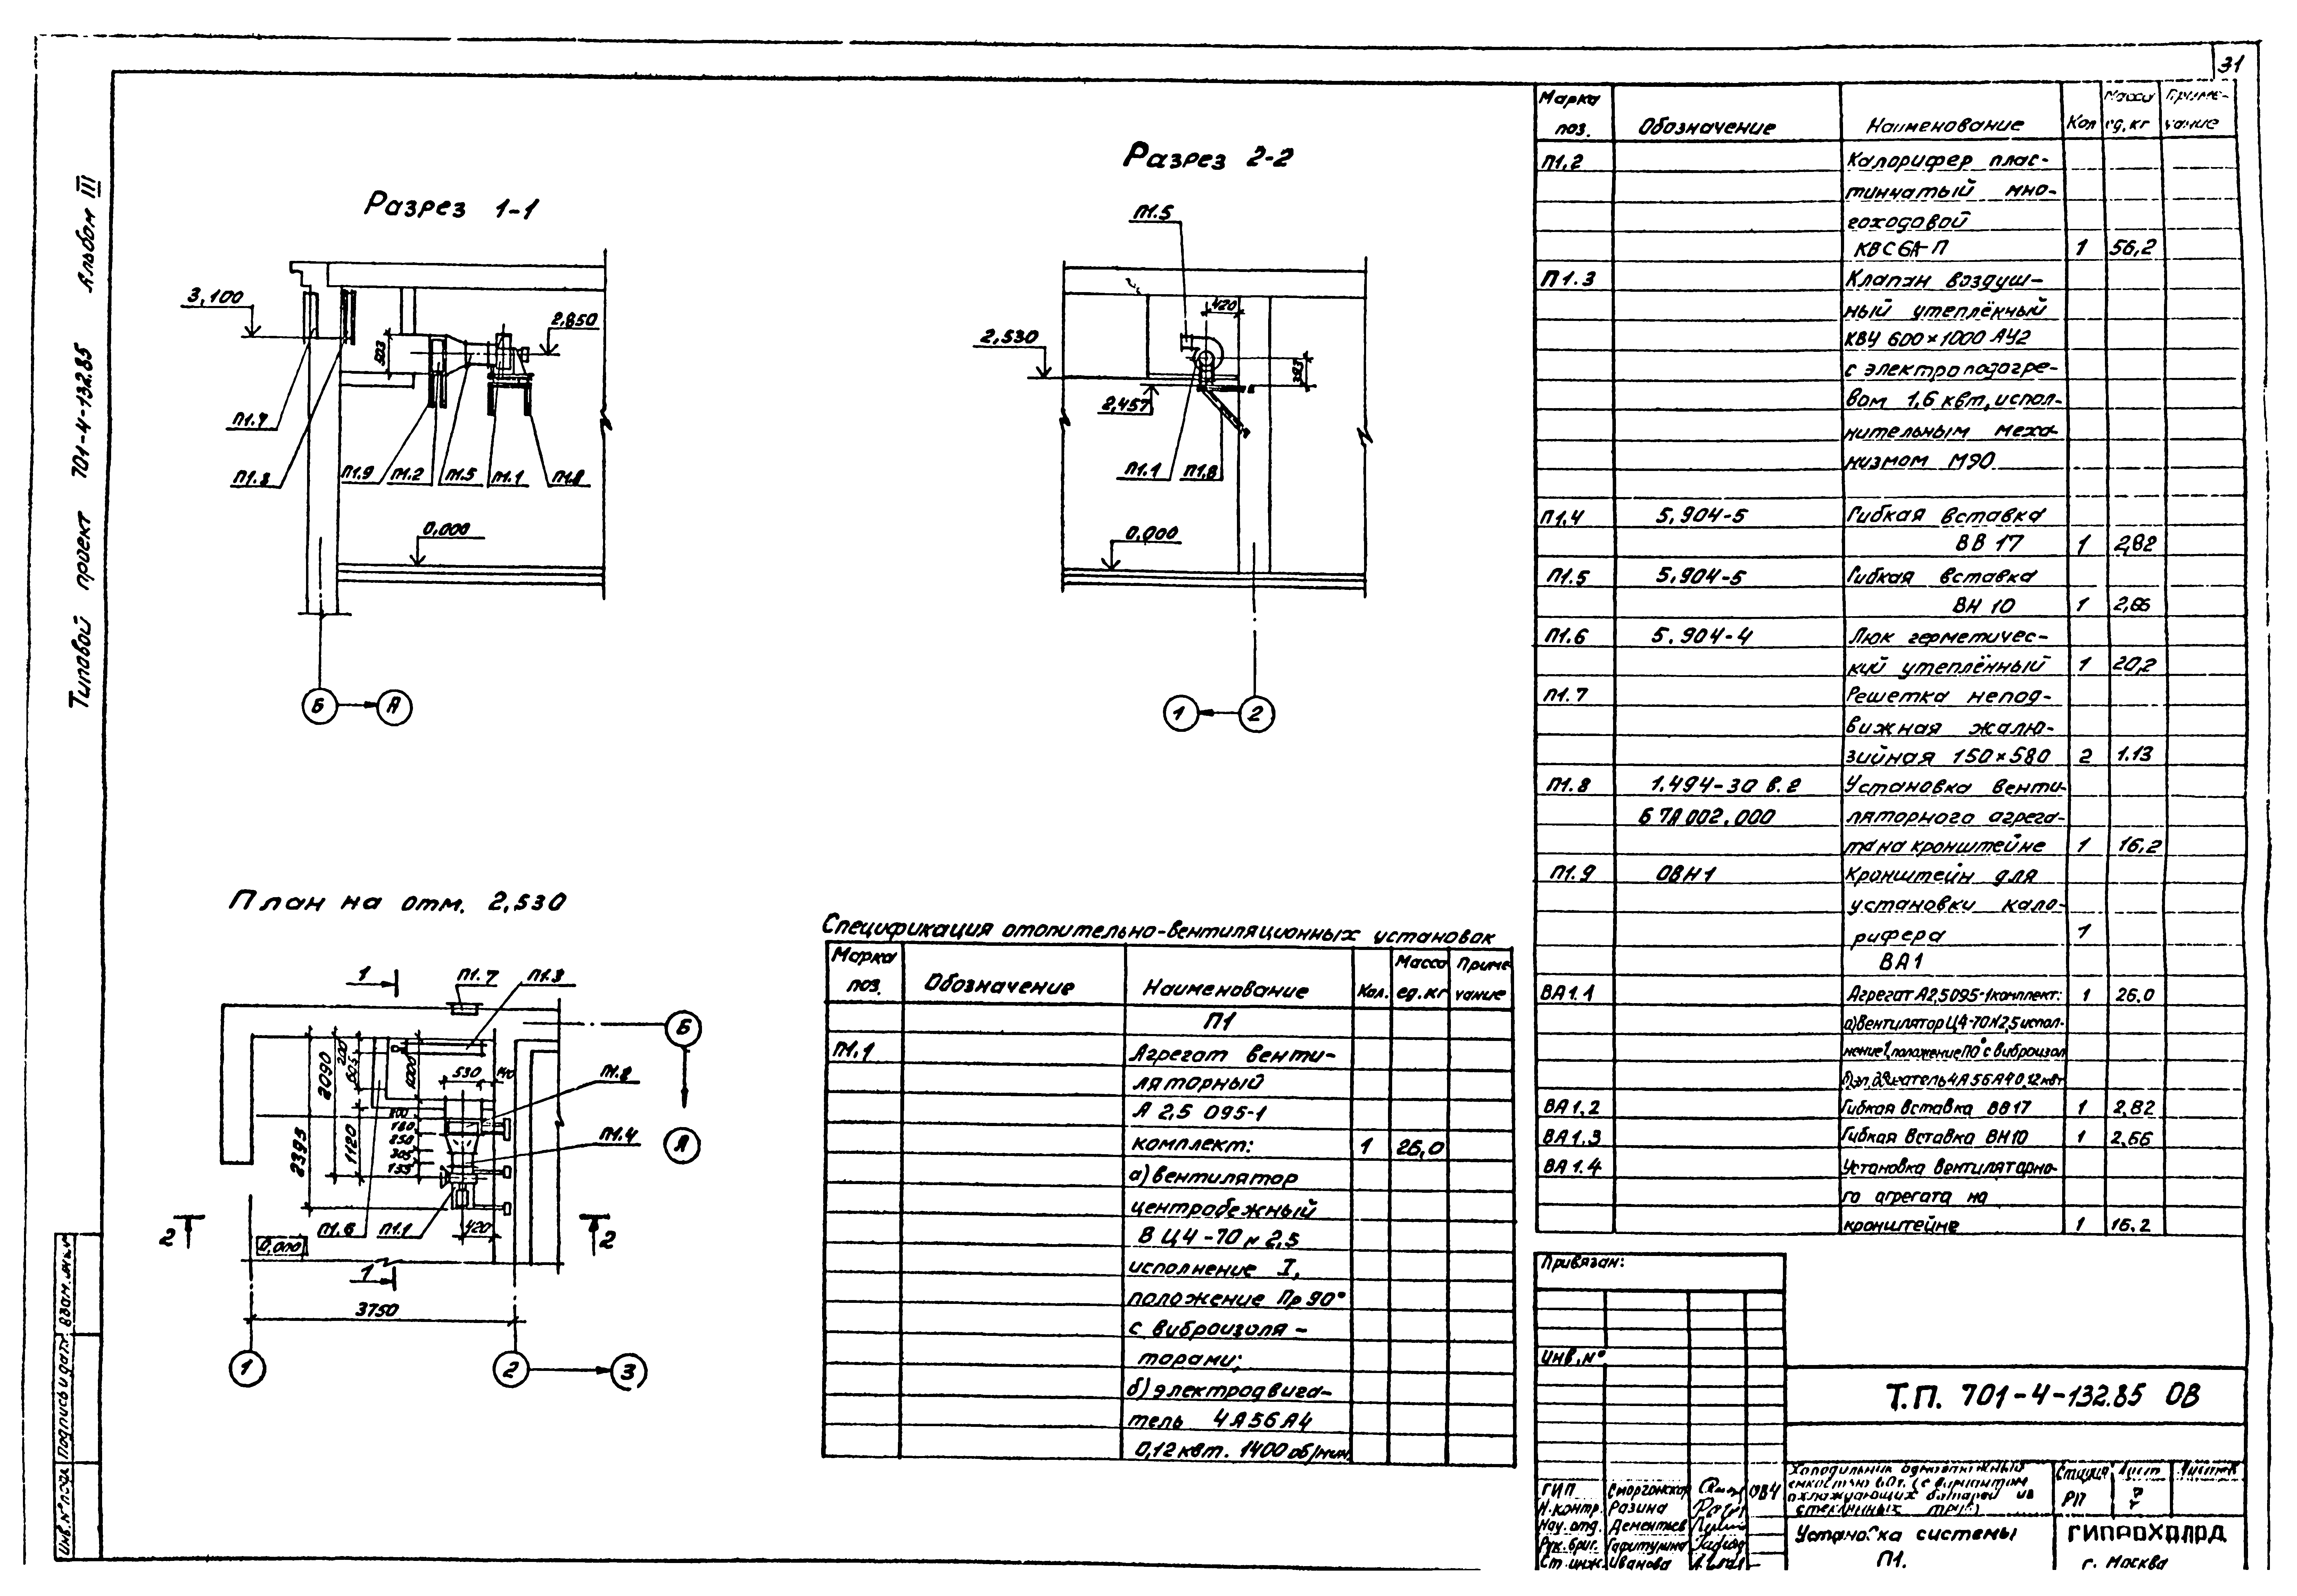 31
Типовой проект 701-4-132.85 Альбом III
Разрез 1-1
3,100
2,850
503
П1.7
П1.3
П1.9 П1.2 П1.5 П1.1 П1.8
0,000
Б А
Разрез 2-2
П1.5
420
2,530
393
2,457
П1.1 П1.8
0,000
1 2
План на отм. 2,530
1 П1.7 П1.3
Б
2090
200
605
1000
530
140
П1.2
2395
1120
180
250
305
155
П1.4
А
2 П1.6 П1.1 420 2
0,000
1
3750
1 2 3
Спецификация отопительно-вентиляционных установок
Марка поз. Обозначение Наименование Кол. Масса ед.кг Примечание
П1
П1.1 Агрегат венти-
ляторный
А 2,5 095-1
комплект: 1 26,0
а) вентилятор
центробежный
В Ц4-70 N 2,5
исполнение I,
положение Пр 90°
с виброизоля-
торами;
б) электродвига-
тель 4А56А4
0,12 квт. 1400 об/мин.
Марка поз. Обозначение Наименование Кол Масса ед.кг Примечание
П1.2 Калорифер плас-
тинчатый мно-
гоходовой
КВС 6А-П 1 56,2
П1.3 Клапан воздуш-
ный утеплённый
КВУ 600×1000 АУ2
с электроподогре-
вом 1,6 квт, испол-
нительным меха-
низмом М90
П1.4 5.904-5 Гибкая вставка
ВВ 17 1 2,82
П1.5 5.904-5 Гибкая вставка
ВН 10 1 2,66
П1.6 5.904-4 Люк герметичес-
кий утеплённый 1 20,2
П1.7 Решетка непод-
вижная жалю-
зийная 150×580 2 1.13
П1.8 1.494-30 в.2 Установка венти-
Б 7А 002.000 ляторного агрега-
та на кронштейне 1 16,2
П1.9 ОВН1 Кронштейн для
установки кало-
рифера 1
ВА1
ВА1.1 Агрегат А2,5095-1 комплект: 1 26.0
а) вентилятор Ц4-70 N2,5 испол-
нение 1, положение П0° с виброизол
б) эл. двигатель 4А56А4 0,12 квт
ВА1.2 Гибкая вставка ВВ17 1 2,82
ВА1.3 Гибкая вставка ВН10 1 2,66
ВА1.4 Установка вентиляторно-
го агрегата на
кронштейне 1 16.2
Привязан:
Инв.N°
Т.П. 701-4-132.85 ОВ
ГИП Сморгонская
Н.контр. Разина
Нач.отд. Дементьев
Рук.бриг.
Ст.инж. Иванова
Холодильник одноэтажный
емкостью
охлаждающих батарей из
стеклянных труб)
Стадия Лист Листов
РП
Установка системы
П1.
ГИПРОХОЛОД
г. Москва
Инв.N° подл. Подпись и дата Взам.инв.N